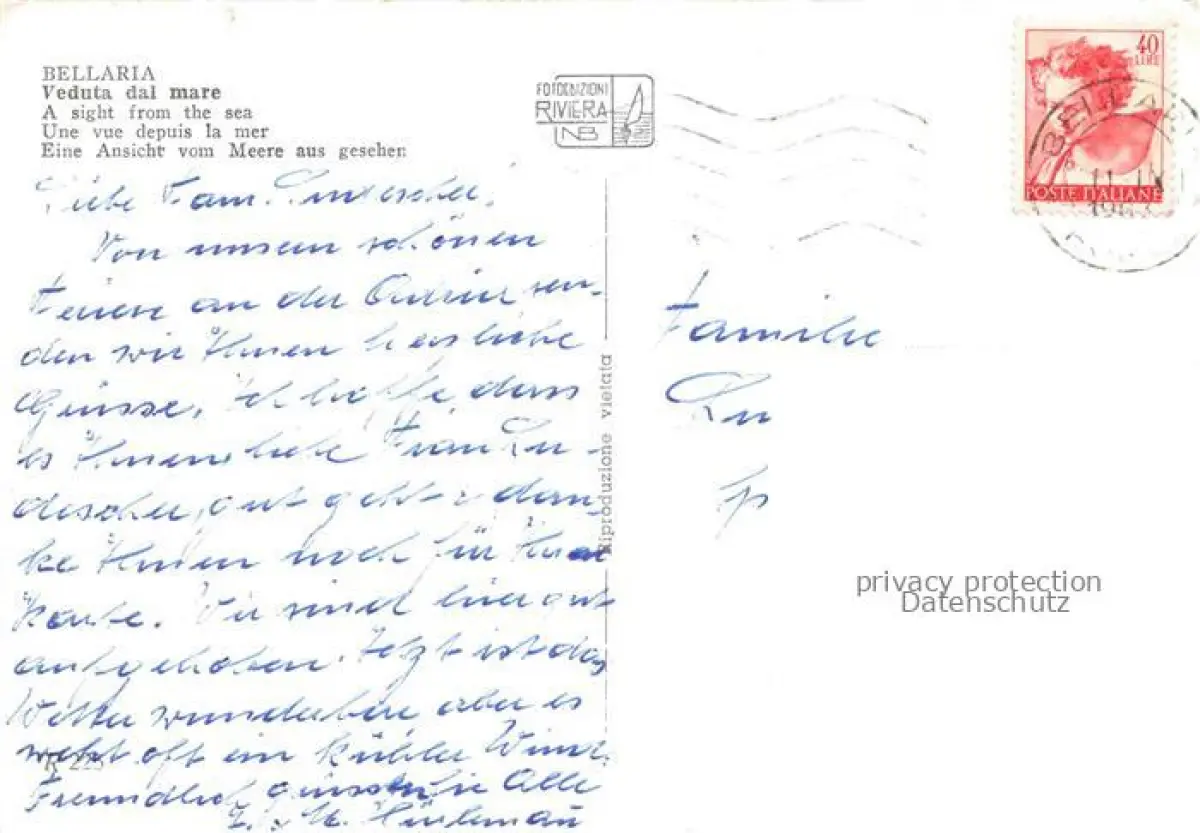 BELLARIA
Veduta dal mare
A sight from the sea
Une vue depuis la mer
Eine Ansicht vom Meere aus gesehen
FOTOEDIZIONI
RIVIERA
40
LIRE
POSTE ITALIANE
BELLARIA
Riproduzione vietata
Liebe Fam.
Von unsern schönen
Ferien an der Adria sen-
den wir Ihnen herzliche
Grüsse. Ich hoffe, dass
es Ihnen, liebe Frau
gut geht & dan-
ke Ihnen noch für Ihre
Karte. Wir sind hier gut
aufgehoben. Jetzt ist das
Wetter wunderbar, aber es
weht oft ein kühler Wind.
R 225
Freundlich grüssen Sie Alle
Familie
privacy protection
Datenschutz